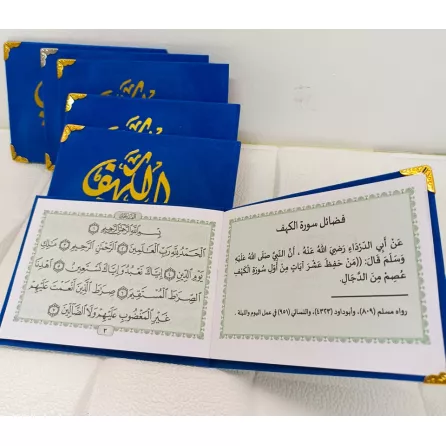 الكهف
فضائل سورة الكهف
عَنْ أَبِي الدَّرْدَاءِ رَضِيَ اللَّهُ عَنْهُ ، أَنَّ النَّبِيَّ صَلَّى اللَّهُ عَلَيْهِ
وَسَلَّمَ قَالَ: ((مَنْ حَفِظَ عَشْرَ آيَاتٍ مِنْ أَوَّلِ سُورَةِ الْكَهْفِ
عُصِمَ مِنَ الدَّجَّالِ.
رواه مسلم (٨٠٩)، وأبوداود (٤٣٢٣)، والنسائي (٩٥١) في عمل اليوم والليلة .
بِسْمِ اللَّهِ الرَّحْمَٰنِ الرَّحِيمِ ١
الْحَمْدُ لِلَّهِ رَبِّ الْعَالَمِينَ ٢ الرَّحْمَٰنِ الرَّحِيمِ ٣ مَالِكِ
يَوْمِ الدِّينِ ٤ إِيَّاكَ نَعْبُدُ وَإِيَّاكَ نَسْتَعِينُ ٥ اهْدِنَا
الصِّرَاطَ الْمُسْتَقِيمَ ٦ صِرَاطَ الَّذِينَ أَنْعَمْتَ عَلَيْهِمْ
غَيْرِ الْمَغْضُوبِ عَلَيْهِمْ وَلَا الضَّالِّينَ ٧
٢